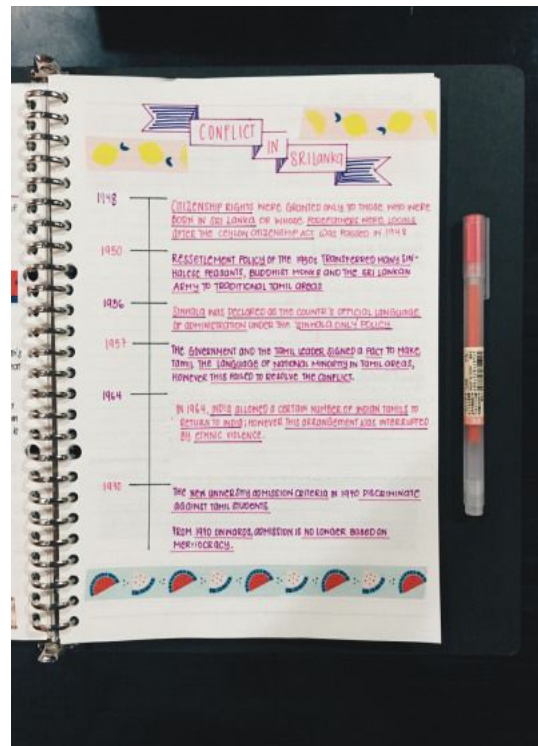 CONFLICT
IN
SRI LANKA
1948
CITIZENSHIP RIGHTS WERE GRANTED ONLY TO THOSE WHO WERE
BORN IN SRI LANKA OR WHOSE FOREFATHERS WERE LOCALS
AFTER THE CEYLON CITIZENSHIP ACT WAS PASSED IN 1948
1950
RESSETLEMENT POLICY OF THE 1950s TRANSFERRED MANY SIN-
HALESE PEASANTS, BUDDHIST MONKS AND THE SRI LANKAN
ARMY TO TRADITIONAL TAMIL AREAS
1956
SINHALA WAS DECLARED AS THE COUNTR'S OFFICIAL LANGUAGE
OF ADMINISTRATION UNDER THE 'SINHALA ONLY POLICY
1957
THE GOVERNMENT AND THE TAMIL LEADER SIGNED A PACT TO MAKE
TAMIL THE LANGUAGE OF NATIONAL MINORITY IN TAMIL AREAS,
HOWEVER THIS FAILED TO RESOLVE THE CONFLICT.
1964
IN 1964, INDIA ALLOWED A CERTAIN NUMBER OF INDIAN TAMILS TO
RETURN TO INDIA; HOWEVER THIS ARRANGEMENT WAS INTERRUPTED
BY ETHNIC VIOLENCE.
1970
THE NEW UNIVERSITY ADMISSION CRITERIA IN 1970 DISCRIMINATE
AGAINST TAMIL STUDENTS
FROM 1970 ONWARDS, ADMISSION IS NO LONGER BASED ON
MERITOCRACY.